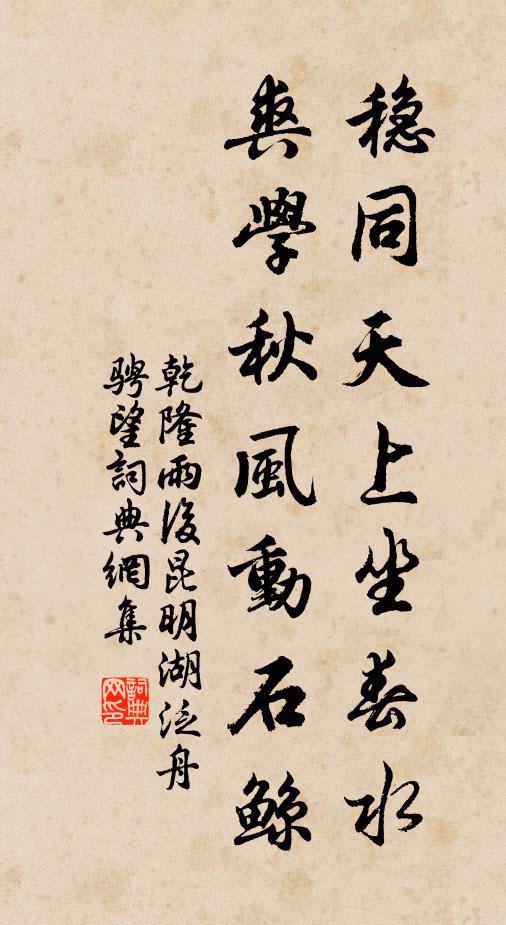 穩同天上坐春水
爽學秋風動石鯨
乾隆雨後昆明湖泛舟
騁望詞典網集
詞典
网印